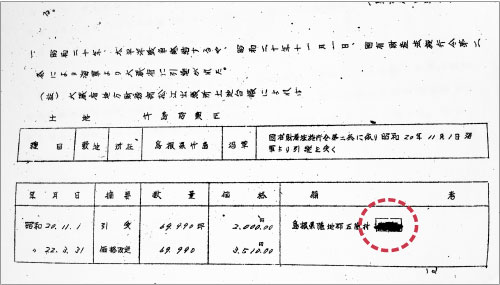 る。
一 昭和二十年、太平洋戦争終結するや、昭和二十年十一月一日、国有財産法施行令第二
条により海軍より大蔵省に引継がれた。
(註) 大蔵省地方財務部松江出張所土地台帳によれば
土地 竹島防禦区
種目 敷地 所在 島根県竹島 沿革 国有財産法施行令第二条に依り昭和20年11月1日海
軍より引継を受く
年月日 摘要 数量 価格 備考
昭和20.11.1 引受 69.990坪 2,000.00円 島根県隠地郡五箇村
〃 22.3.31 価格改定 69.990 3,510.00円